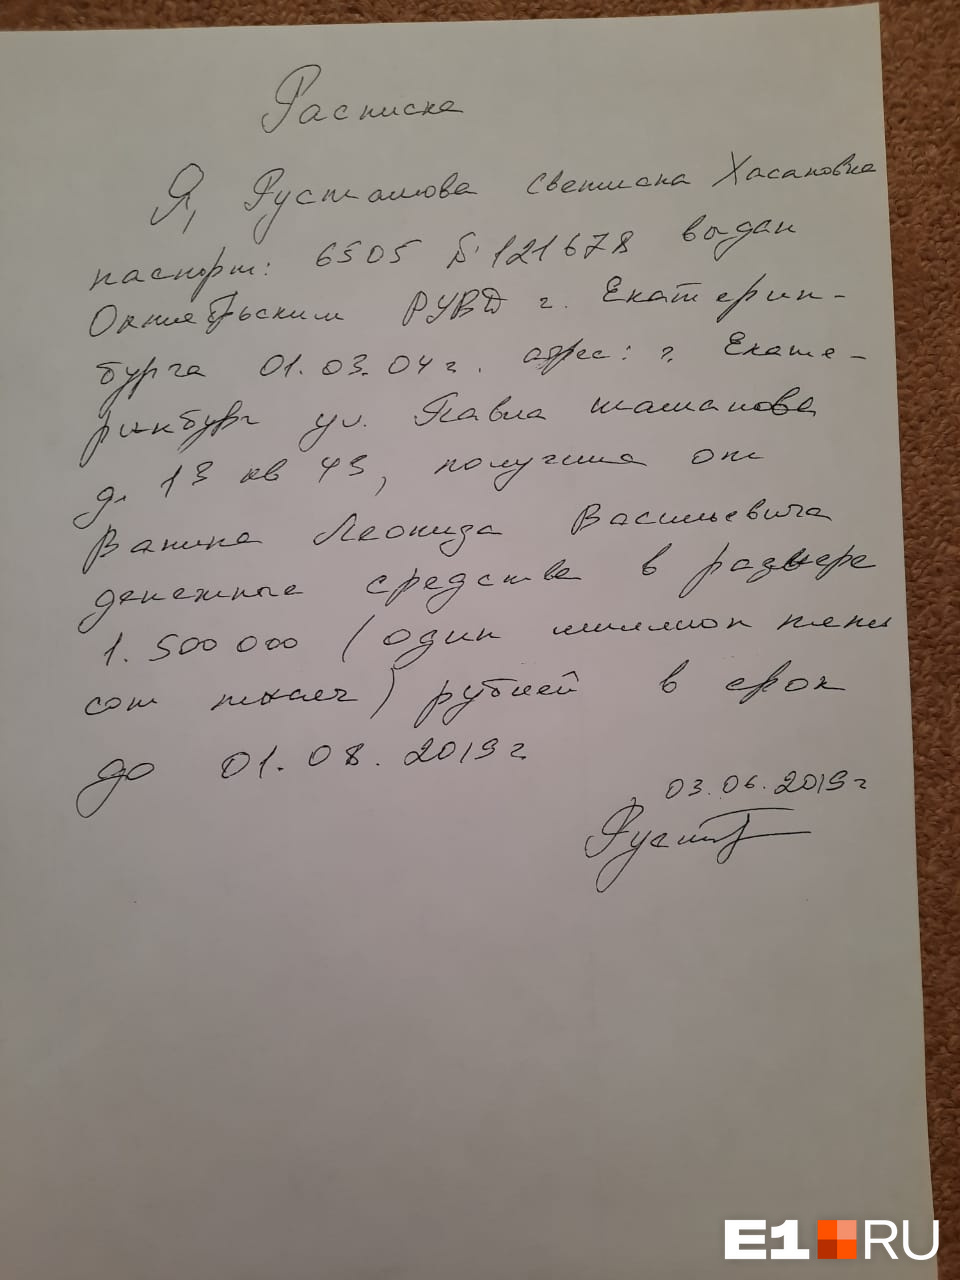 Расписка
Я, Рустамова Светлана Хасановна
паспорт: 6505 № 121678 выдан
Октябрьским РУВД г. Екатерин-
бурга 01.03.04 г. адрес: г. Екате-
ринбург ул. Павла Шаманова
д. 13 кв 43, получила от
Ванина Леонида Васильевича
денежные средства в размере
1.500 000 (один миллион пять
сот тысяч) рублей в срок
до 01.08.2019 г
03.06.2019 г
Руст
E1.RU